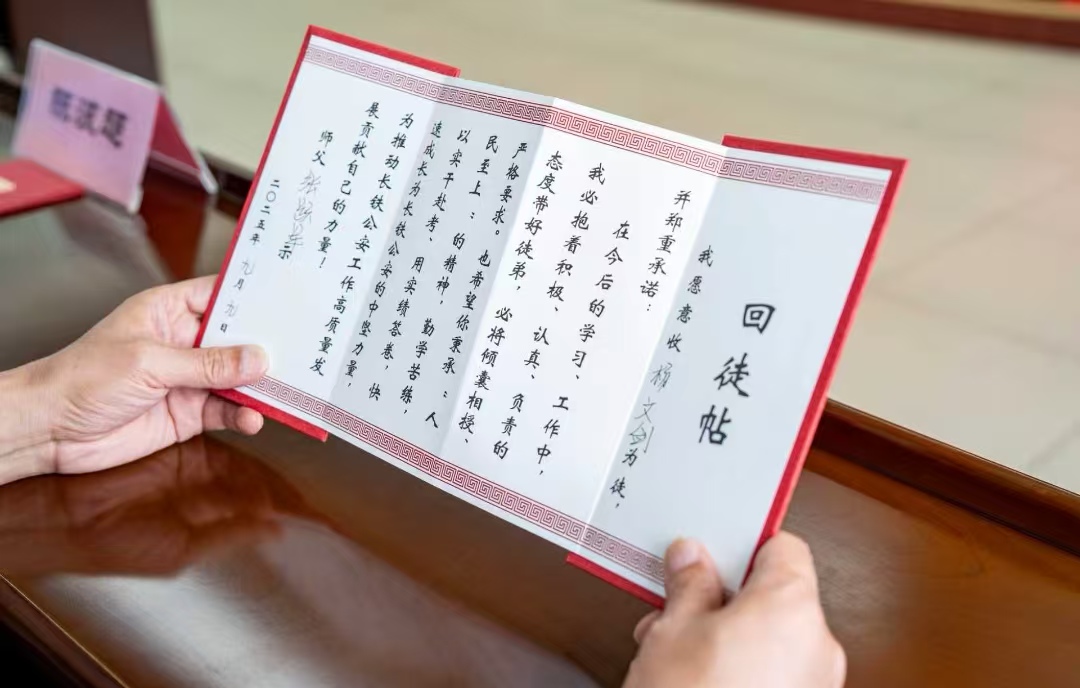 回徒帖
我愿意收杨文剑为徒，
并郑重承诺：
在今后的学习、工作中，
我必抱着积极、认真、负责的
态度带好徒弟，必将倾囊相授、
严格要求。也希望你秉承：人
民至上：的精神，勤学苦练，
以实干赴考、用实绩答卷，快
速成长为长铁公安的中坚力量，
为推动长铁公安工作高质量发
展贡献自己的力量！
师父 张 示
二〇二五年 九月 九日